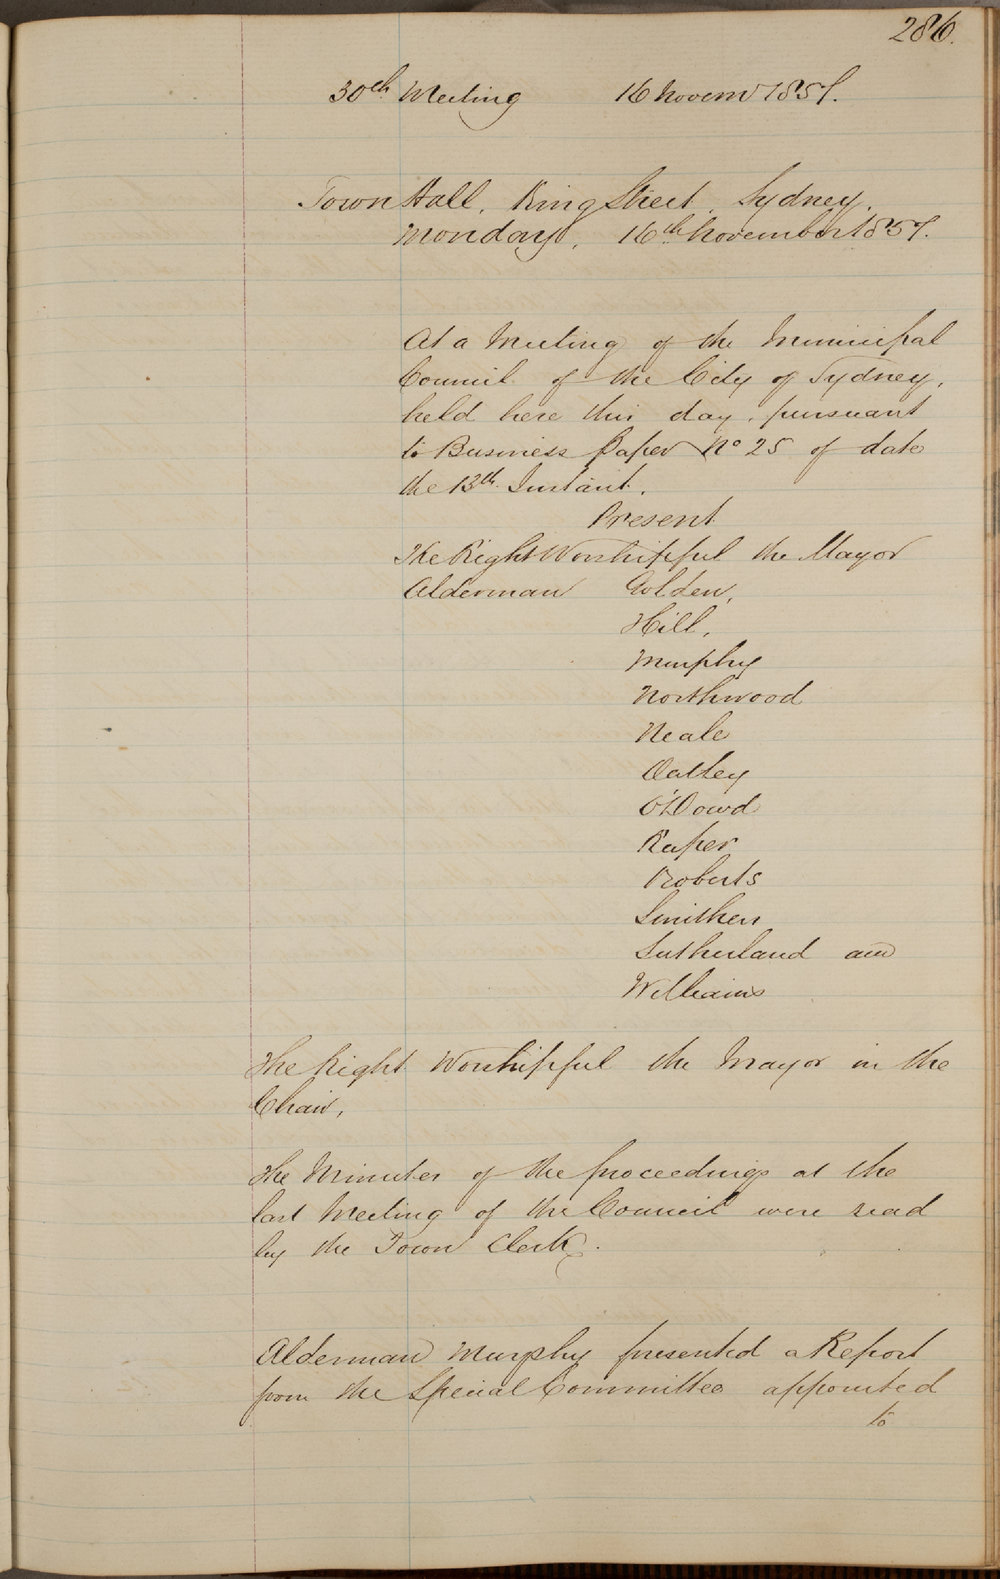 286.
30th Meeting 16 Novemr 1857.
Town Hall, King Street, Sydney,
Monday, 16th November 1857.
At a Meeting of the Municipal
Council of the City of Sydney,
held here this day, pursuant
to Business Paper No 25 of date
the 13th Instant.
Present
The Right Worshipful the Mayor
Alderman Golden,
Hill,
Murphy
Northwood
Neale
Oatley
O'Dowd
Raper
Roberts
Smithers
Sutherland and
Williams
The Right Worshipful the Mayor in the
Chair,
The Minutes of the proceedings at the
last Meeting of the Council were read
by the Town Clerk.
Alderman Murphy presented a Report
from the Special Committee appointed
to